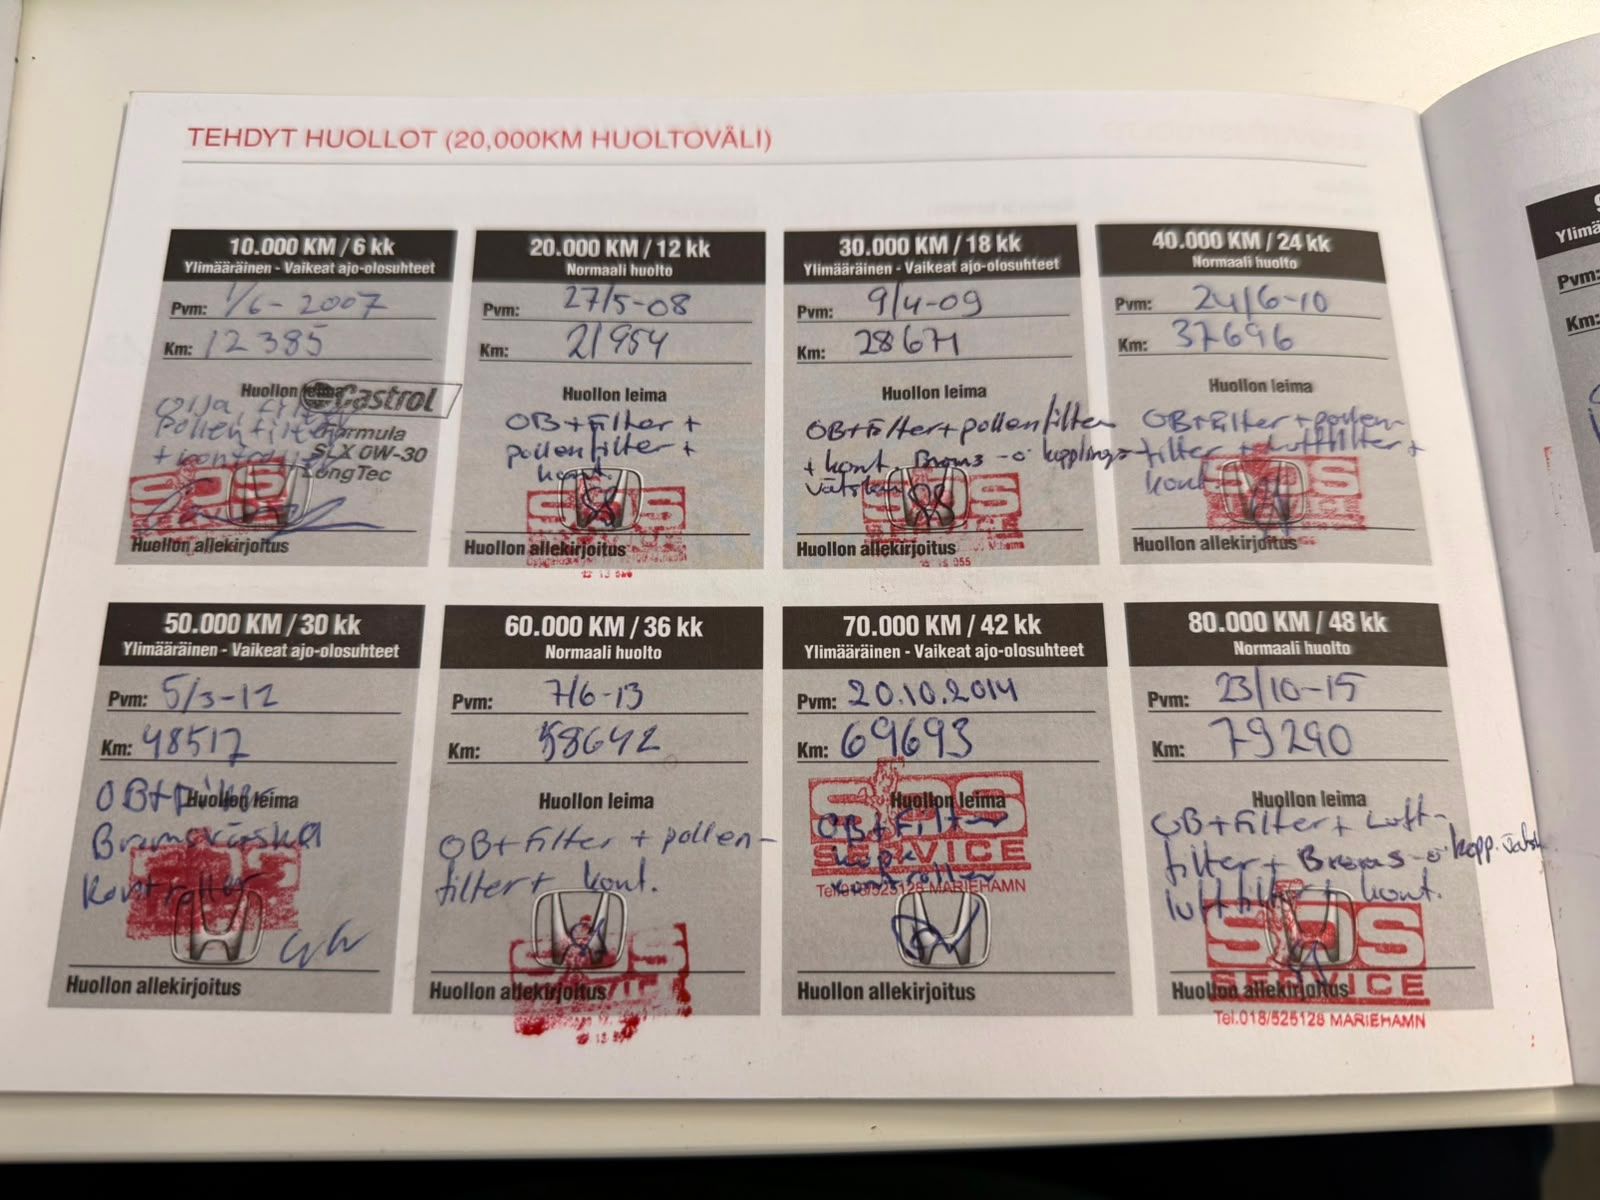 TEHDYT HUOLLOT (20,000KM HUOLTOVÄLI)
10.000 KM / 6 kk
Ylimääräinen - Vaikeat ajo-olosuhteet
Pvm: 1/6-2007
Km: 12385
Huollon leima
Castrol
Formula
SLX 0W-30
LongTec
Olja, filter
Pollenfilter
SOS
Huollon allekirjoitus
20.000 KM / 12 kk
Normaali huolto
Pvm: 27/5-08
Km: 21954
Huollon leima
OB+Filter +
pollenfilter +
kont.
SOS
Huollon allekirjoitus
30.000 KM / 18 kk
Ylimääräinen - Vaikeat ajo-olosuhteet
Pvm: 9/4-09
Km: 28671
Huollon leima
OB+Filter+pollenfilter
+ kont. Broms -o kopplings-
vätska
SOS
Huollon allekirjoitus
40.000 KM / 24 kk
Normaali huolto
Pvm: 24/6-10
Km: 37696
Huollon leima
OB+Filter+pollen-
filter + Luftfilter +
kont
SOS
Huollon allekirjoitus
50.000 KM / 30 kk
Ylimääräinen - Vaikeat ajo-olosuhteet
Pvm: 5/3-12
Km: 48517
Huollon leima
OB+
Bromsväska
Kontroller
Huollon allekirjoitus
60.000 KM / 36 kk
Normaali huolto
Pvm: 7/6-13
Km: 58642
Huollon leima
OB+Filter + pollen-
filter + kont.
SOS
Huollon allekirjoitus
70.000 KM / 42 kk
Ylimääräinen - Vaikeat ajo-olosuhteet
Pvm: 20.10.2014
Km: 69693
Huollon leima
OB+Filter
kontroller
SOS
SERVICE
Tel.018/525128 MARIEHAMN
Huollon allekirjoitus
80.000 KM / 48 kk
Normaali huolto
Pvm: 23/10-15
Km: 79290
Huollon leima
OB+Filter+ Luft-
filter + Broms -o kopp.vätsk
luftfilter + kont.
SOS
SERVICE
Huollon allekirjoitus
Tel.018/525128 MARIEHAMN
Pvm:
Km: